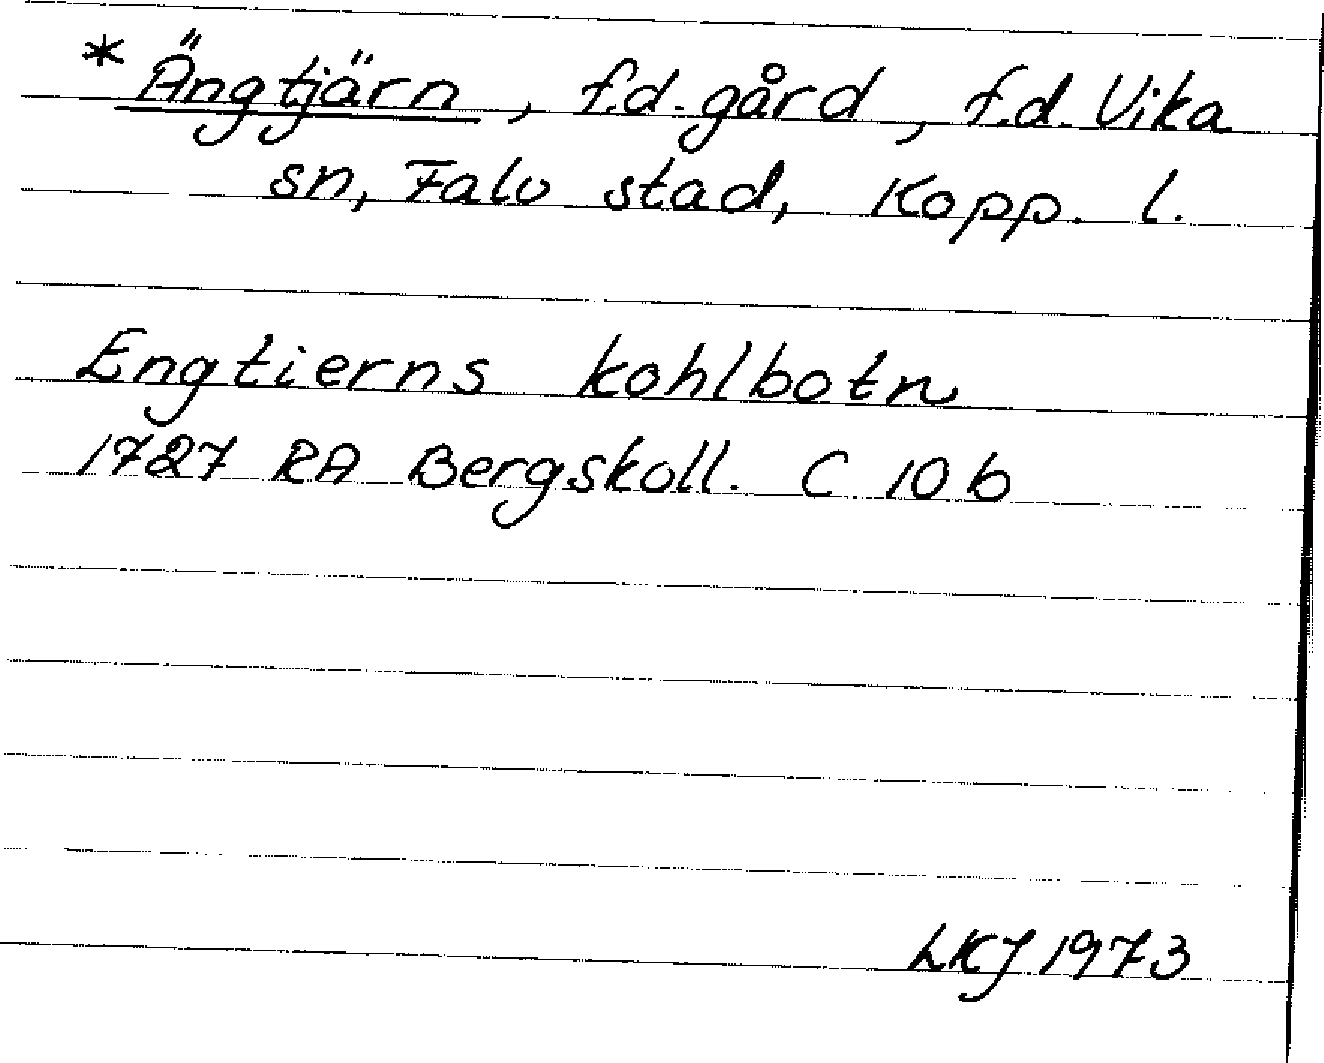 * Ängtjärn, f.d. gård, f.d. Vika
sn, Falu stad, Kopp. l.
Engtierns kohlbotn
1727 RA Bergskoll. C 10 b
LKJ 1973